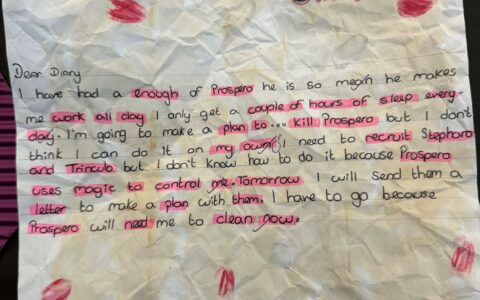 Dear Diary
I have had a enough of Prospero he is so mean he makes
me work all day I only get a couple of hours of sleep every-
day. I'm going to make a plan to... kill Prospero but I don't
think I can do it on my own. I need to recruit Stephoro
and Trinculo but I don't know how to do it because Prospero
uses magic to control me. Tomorrow I will send them a
letter to make a plan with them. I have to go because
Prospero will need me to clean now.